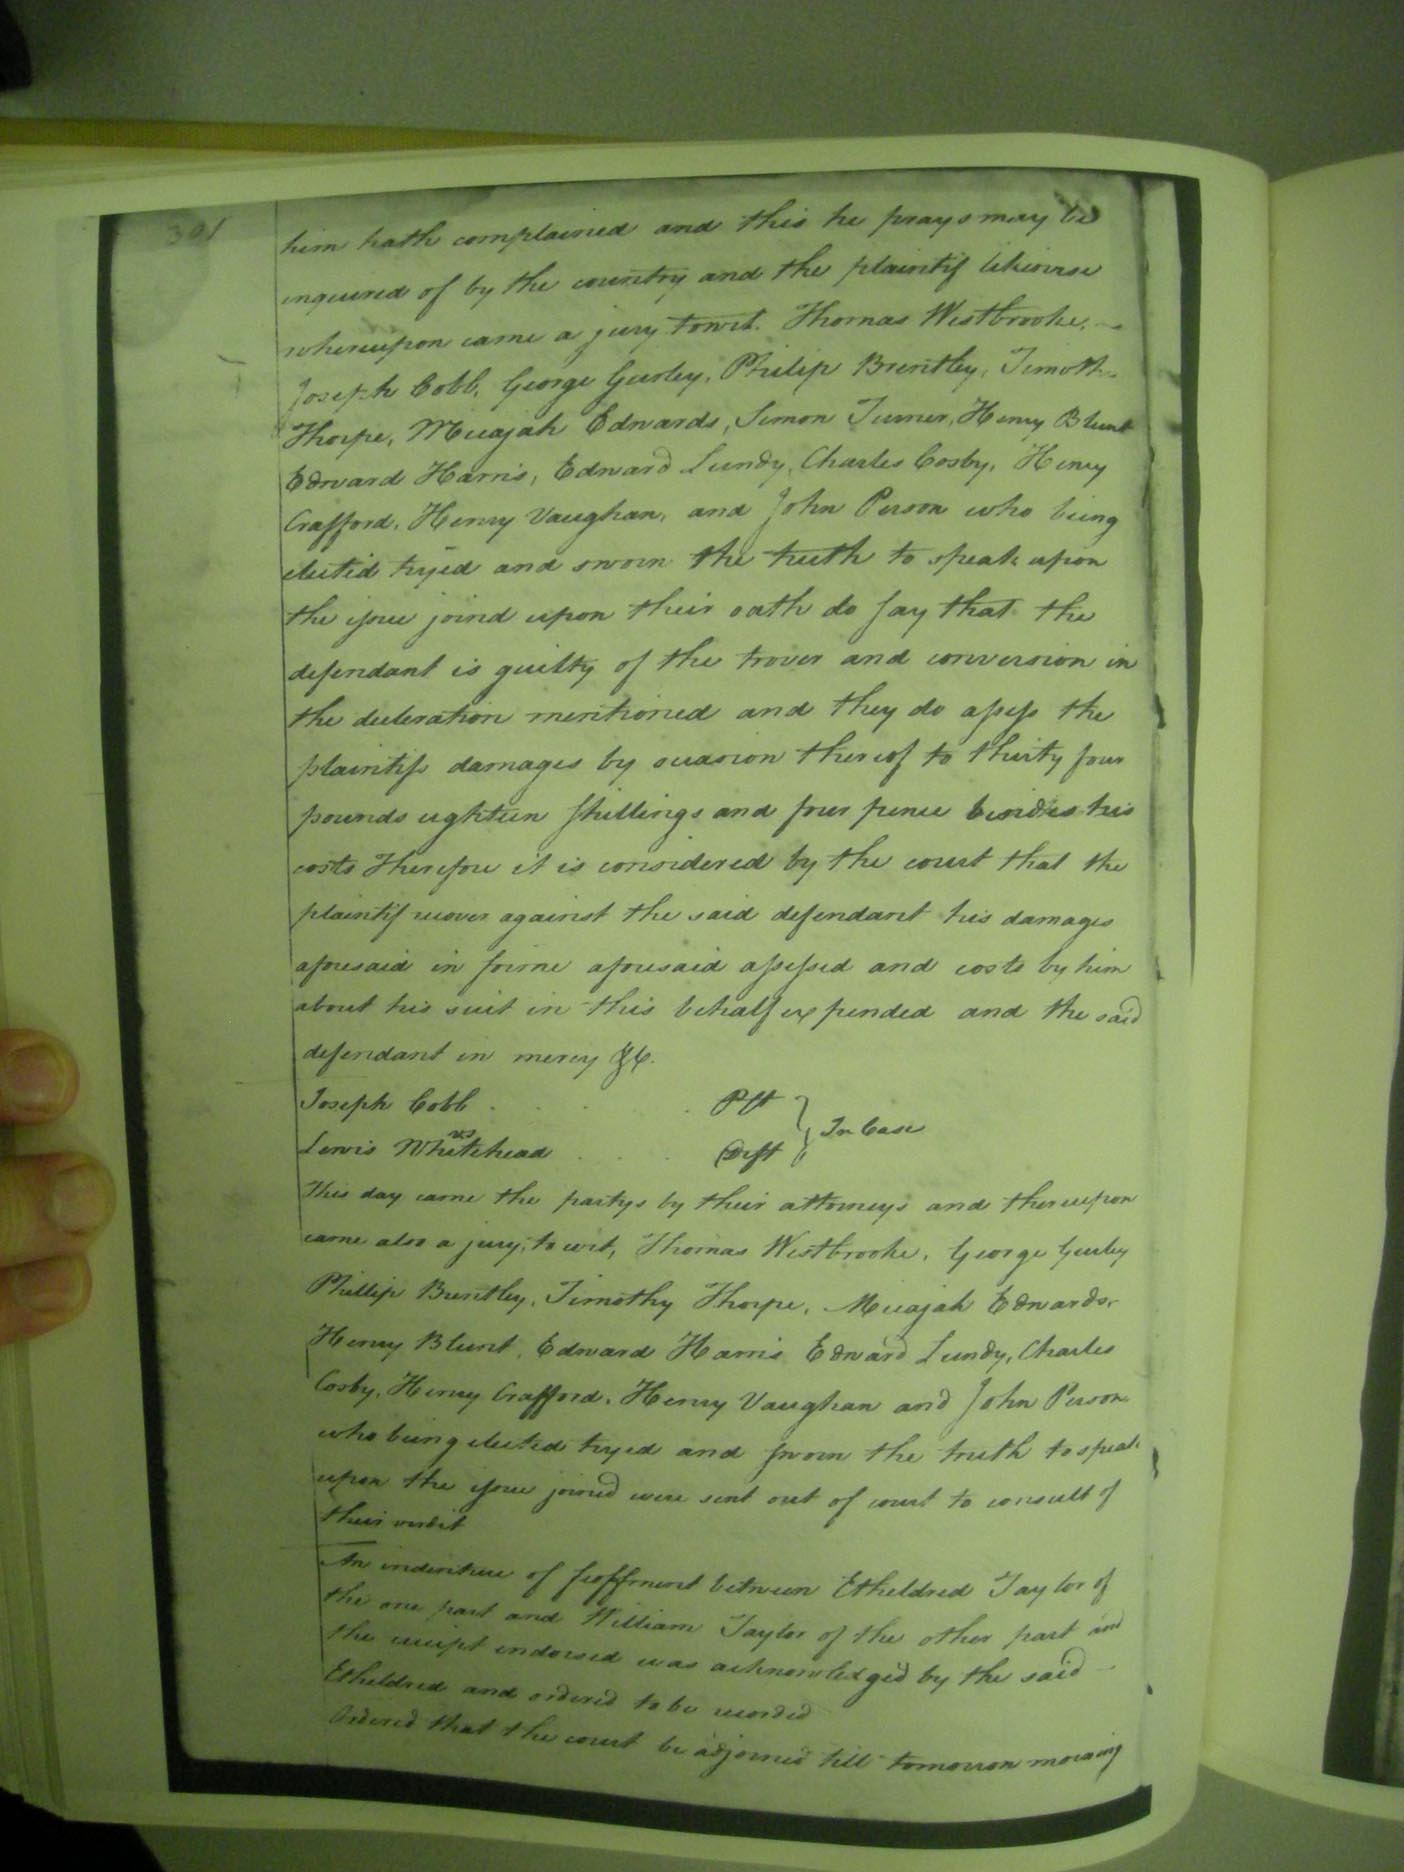 301
him hath complained and this he prays may be
inquired of by the country and the plaintif likewise
whereupon came a jury towit. Thomas Westbrooke,
Joseph Cobb, George Gurley, Philip Brentley, Timothy
Thorpe, Micajah Edwards, Simon Turner, Henry Blunt
Edward Harris, Edward Lundy, Charles Cosby, Henry
Crafford, Henry Vaughan, and John Person who being
elected tryed and sworn the truth to speak upon
the issue joind upon their oath do say that the
defendant is guilty of the trover and conversion in
the decleration mentioned and they do assess the
plaintifs damages by occasion thereof to thirty four
pounds eighteen shillings and four pence besides his
costs Therefore it is considered by the court that the
plaintif recover against the said defendant his damages
aforesaid in forme aforesaid assessed and costs by him
about his suit in this behalf expended and the said
defendant in mercy &c.
Joseph Cobb . . . . Plt
vs } In Case
Lewis Whitehead . . . Deft
This day came the partys by their attorneys and thereupon
came also a jury, to wit, Thomas Westbrooke, George Gurley
Phillip Brentley, Timothy Thorpe, Micajah Edwards,
Henry Blunt, Edward Harris Edward Lundy, Charles
Cosby, Henry Crafford, Henry Vaughan and John Person
who being elected tryed and sworn the truth to speak
upon the issue joined were sent out of court to consult of
their verdit
An indenture of feoffment between Etheldred Taylor of
the one part and William Taylor of the other part and
the receipt endorsed was acknowledged by the said
Etheldred and ordered to be recorded
Ordered that the court be adjorned till tomorrow morning